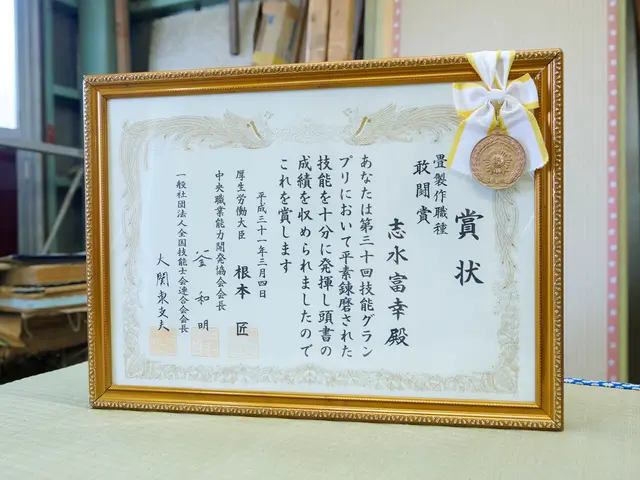 賞状
畳製作職種
敢闘賞
志水富幸殿
あなたは第三十回技能グラン
プリにおいて平素錬磨された
技能を十分に発揮し頭書の
成績を収められましたので
これを賞します
平成三十一年三月四日
厚生労働大臣 根本匠
中央職業能力開発協会会長
釜和明
一般社団法人全国技能士会連合会会長
大関東支夫